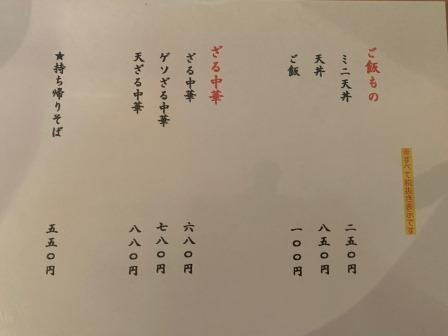 ※すべて税抜き表示です
ご飯もの
ミニ天丼 二五〇円
天丼 八五〇円
ご飯 一〇〇円
ざる中華
ざる中華 六八〇円
ゲソざる中華 七八〇円
天ざる中華 八八〇円
★持ち帰りそば 五五〇円